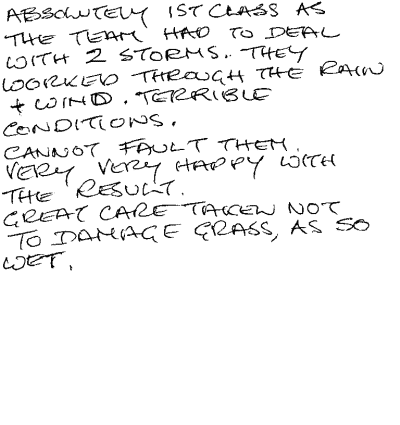 ABSOLUTELY 1ST CLASS AS
THE TEAM HAD TO DEAL
WITH 2 STORMS. THEY
WORKED THROUGH THE RAIN
+ WIND. TERRIBLE
CONDITIONS.
CANNOT FAULT THEM.
VERY VERY HAPPY WITH
THE RESULT.
GREAT CARE TAKEN NOT
TO DAMAGE GRASS, AS SO
WET.